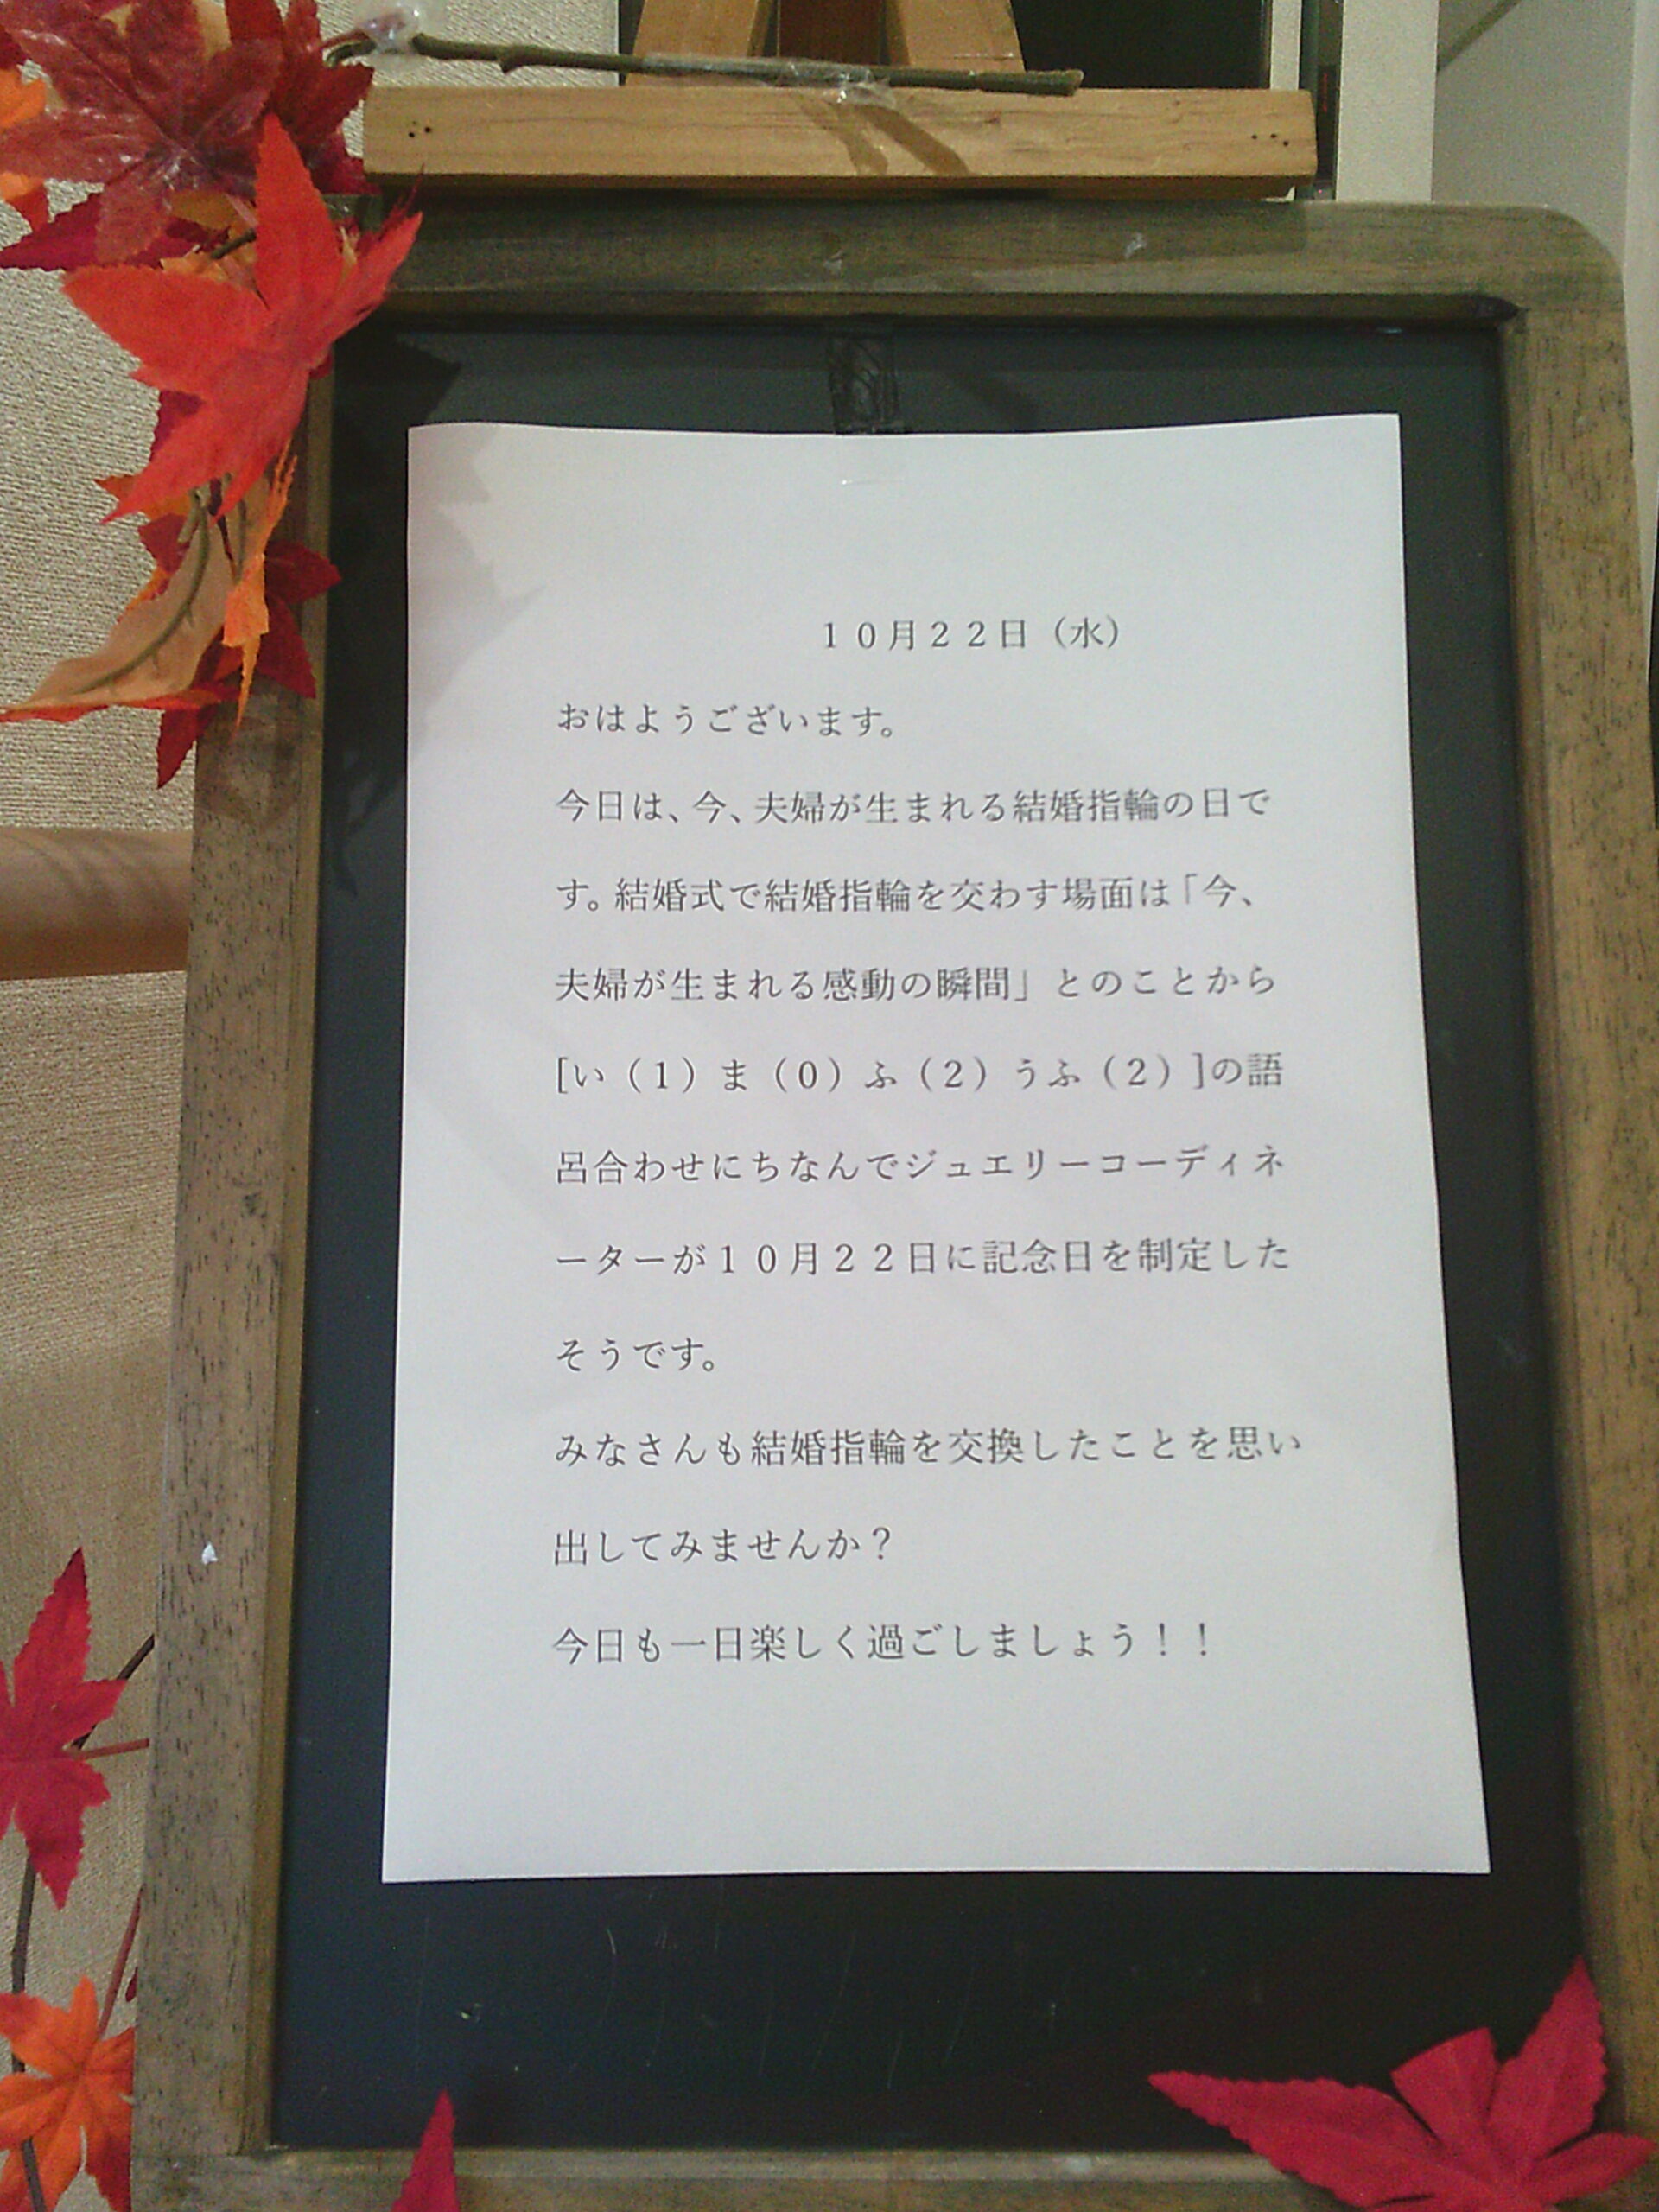 １０月２２日（水）
おはようございます。
今日は、今、夫婦が生まれる結婚指輪の日で
す。結婚式で結婚指輪を交わす場面は「今、
夫婦が生まれる感動の瞬間」とのことから
[い（1）ま（0）ふ（2）うふ（2）]の語
呂合わせにちなんでジュエリーコーディネ
ーターが１０月２２日に記念日を制定した
そうです。
みなさんも結婚指輪を交換したことを思い
出してみませんか？
今日も一日楽しく過ごしましょう！！